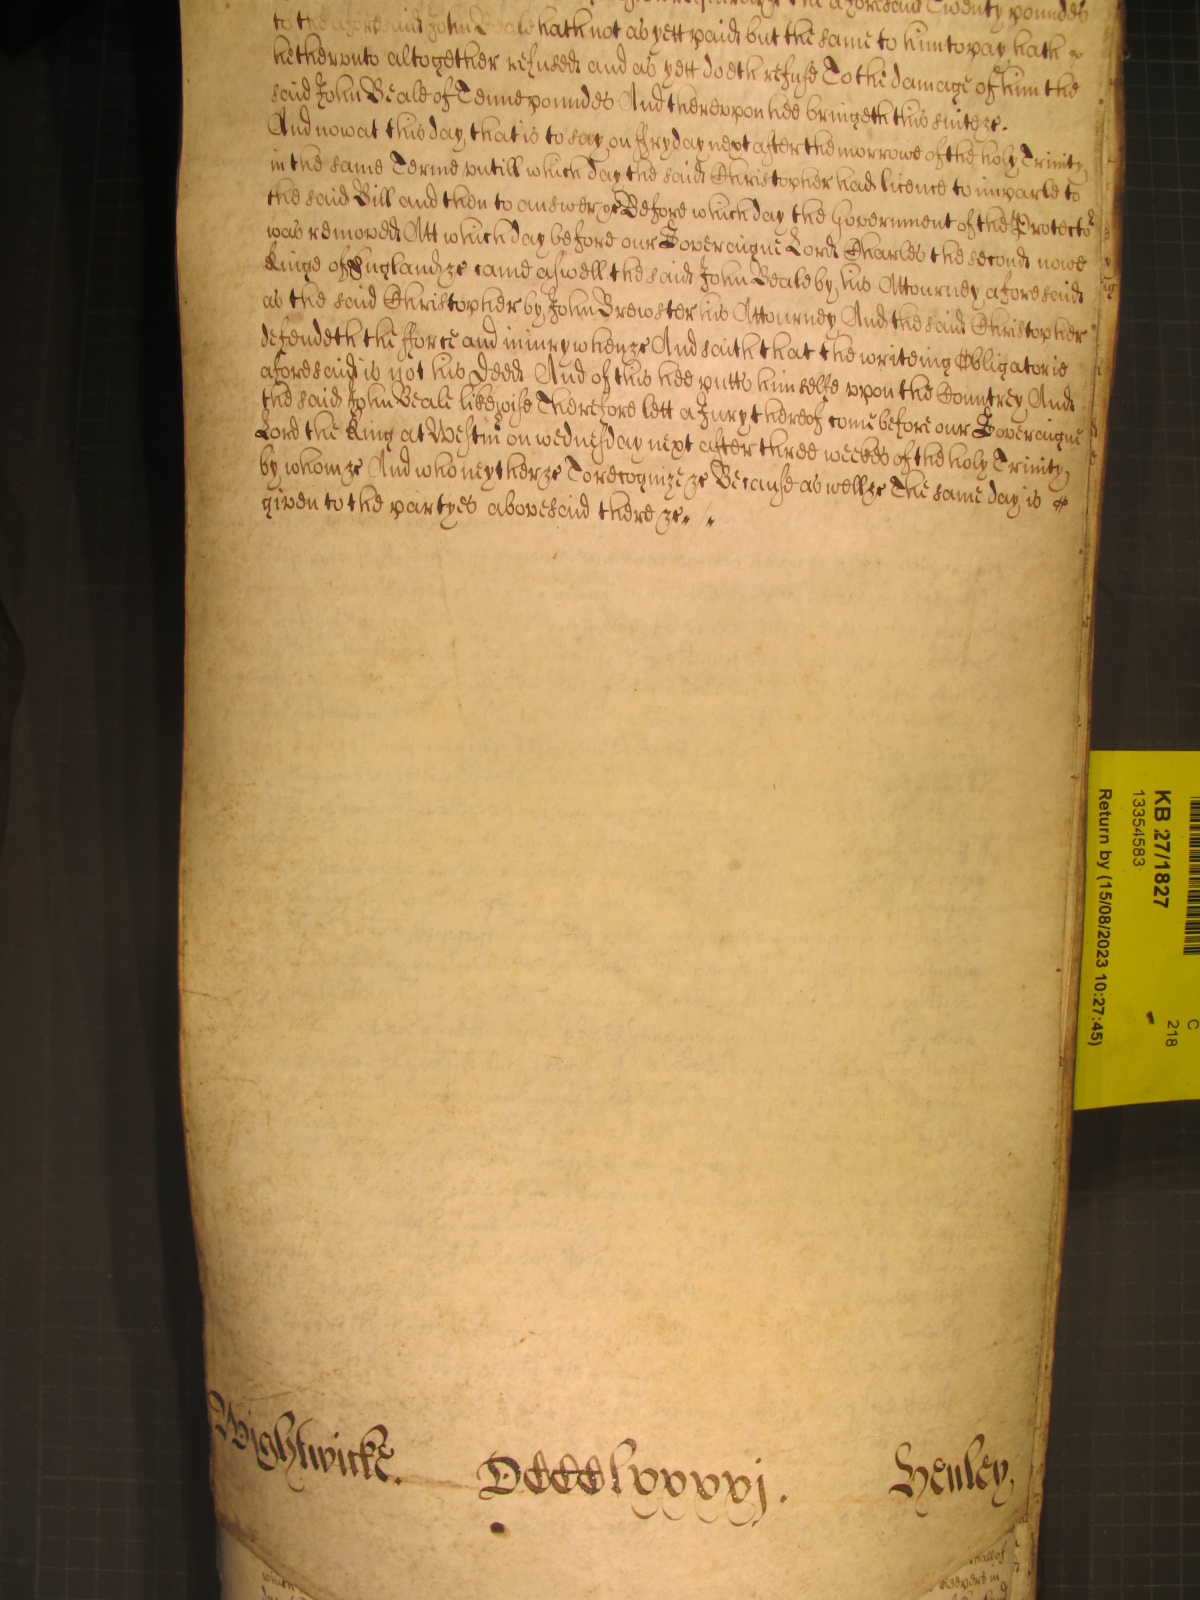 the aforesaid Twenty poundes
to the aforesaid John Beale hath not as yett paid but the same to him to pay hath
hetherunto altogether refused and as yett doeth refuse To the damage of him the
said John Beale of Tenne poundes And thereupon hee bringeth this suite &c.
And now at this day that is to say on ffryday next after the morrowe of the holy Trinity
in the same Terme untill which day the said Christopher had licence to imparle to
the said Bill and then to answer &c Before which day the Government of the Protector
was removed Att which day before our Soveraigne Lord Charles the second nowe
Kinge of England &c came aswell the said John Beale by his Attourney aforesaid
as the said Christopher by John Brewster his Attourney And the said Christopher
defendeth the fforce and iniury when &c And saith that the writeing Obligatorie
aforesaid is not his Deed And of this hee putts him selfe uppon the Countrey And
the said John Beale likewise Therefore lett a Jury thereof come before our Soveraigne
Lord the King at Westm on wednesday next after three weekes of the holy Trinity
by whom &c And who neyther &c To recognize &c Because aswell &c The same day is
given to the partyes abovesaid there &c.
Wightwicke.
DCCClxxxxj.
Henley.
KB 27/1827
13354583
C
218
Return by (15/08/2023 10:27:45)